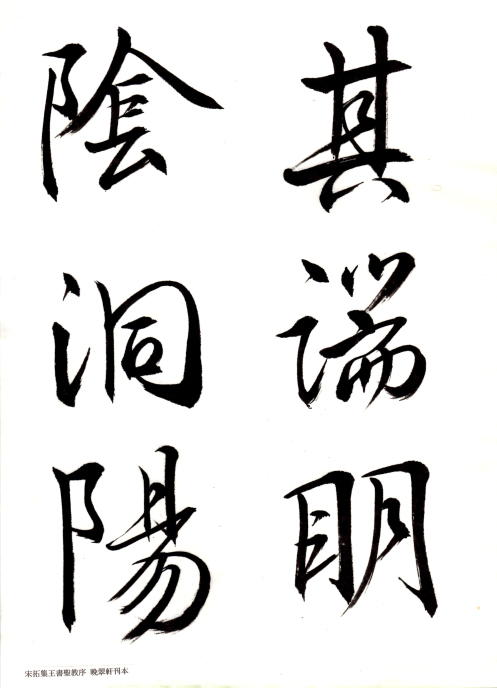 其端明
陰洞陽
宋拓集王書聖教序 晩翠軒刊本